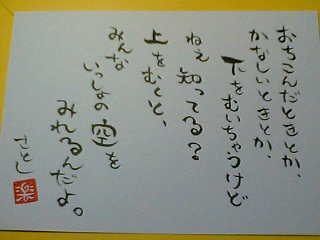 おちこんだときとか、
かなしいときとか、
下をむいちゃうけど
ねぇ知ってる？
上をむくと、
みんな
いっしょの空を
みれるんだよ。
さとし